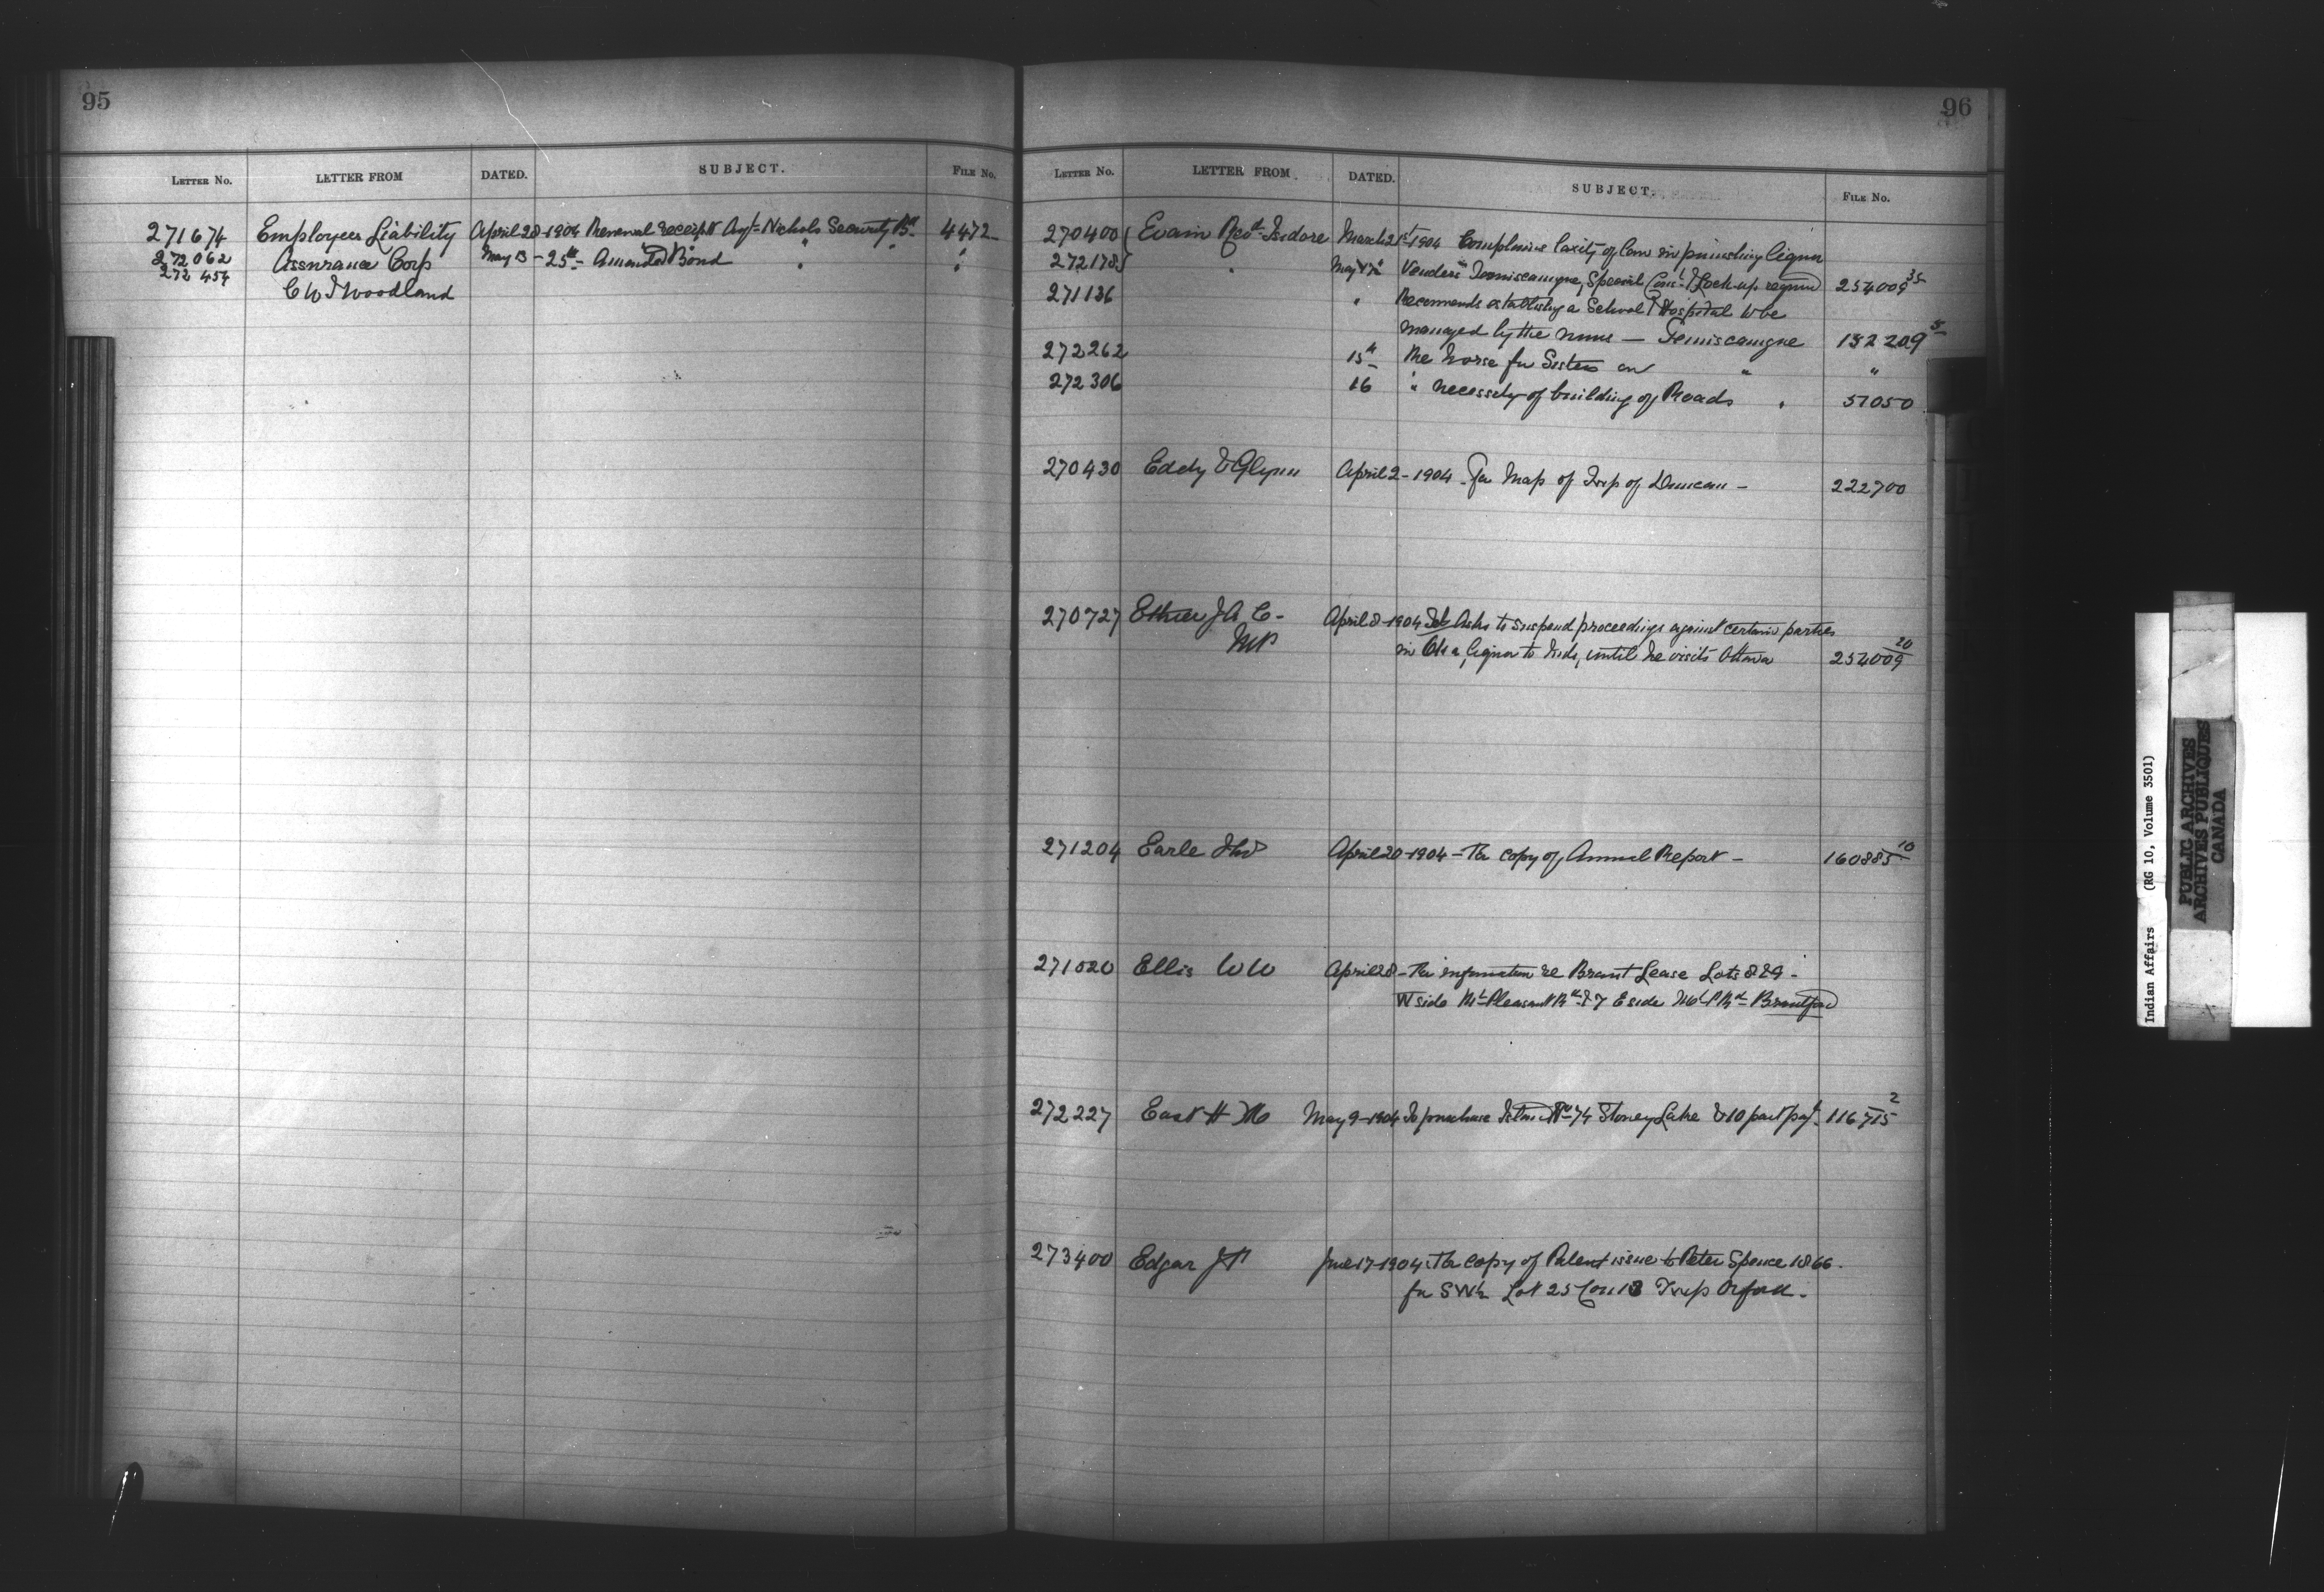 95
LETTER NO. LETTER FROM DATED. SUBJECT. FILE NO.
271674 Employers Liability April 28 1904 Renewal receipt Agt Nichols Security Bd 4472
272062 Assurance Corp May 13 - 25th - Amended Bond " " "
272454 C W I Woodland
96
LETTER NO. LETTER FROM DATED. SUBJECT. FILE NO.
270400 Evain Revd Isidore March 21st 1904 Complains laxity of law in punishing liquor
272178 " May 17th Venders Temiscamgue, Special Const & Lock-up required 254009 35
271136 " Recomends establishg a School & Hospital to be
managed by the nuns — Temiscamgue 132209 5
272262 15th Re horse for Sisters on " "
272306 16 " necessity of building of Roads " 57050
270430 Eddy & Glynn April 2 - 1904 - For Map of Twp of Duncan - 222700
270727 Ethier J A C - April 8 - 1904 Asks to suspend proceedings against certain parties
MP in Oka, liquor to Inds, until he visits Ottawa 254009 20
271204 Earle April 20 - 1904 - For copy of Annual Report - 160885 10
271620 Ellis W W April 28 - For information re Brant Lease Lots 8 & 9 -
W side Mt Pleasant Rd & 7 E side Mt P Rd Brantford
272227 East H M May 9 - 1904 To purchase Island No 74 Stoney Lake $10 part payt. 116715 2
273400 Edgar J P June 17 - 1904. For copy of Patent issue to Peter Spence 1866.
for S W½ Lot 25 Con 13 Twp Orford.
Indian Affairs (RG 10, Volume 3501)
PUBLIC ARCHIVES
ARCHIVES PUBLIQUES
CANADA